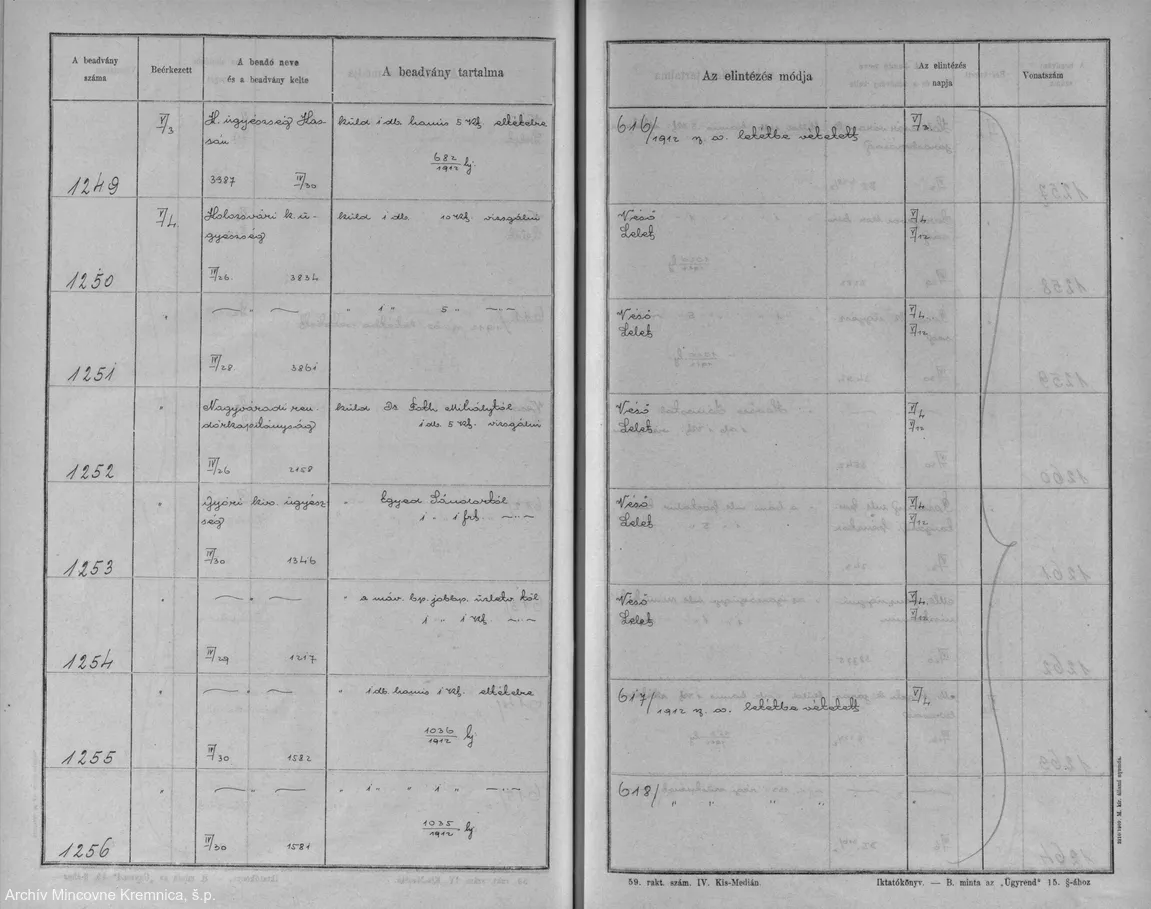 A beadvány száma
Beérkezett
A beadó neve és a beadvány kelte
A beadvány tartalma
Az elintézés módja
Az elintézés napja
Vonatszám
V/3
K. ügyészség
küld 1 db. hamis 5 Kf. elitélve
682/1912
616/1912 sz. a. letétbe vétetett
V/3
1249
3987 IV/30
V/4
Kolozsvári k. ü-
gyészség
küld 1 db. 10 Kf. vizsgálni
Véső V/4
Lelet V/12
1250
IV/26. 3834
" 1 " 5 "
Véső V/4
Lelet V/12
1251
IV/28 3861
Nagyváradi ren-
dőrkapitányság
küld Dr. Mihálytól
1 db. 5 Kf. vizsgálni
Véső V/4
Lelet V/12
1252
IV/26 2158
Győri kir. ügyész-
ség
" Egyed Sándortól
1 " 1 frt.
Véső V/4
Lelet V/12
1253
IV/30 1346
" a máv. bp. jobbp. üzletv. től
1 " 1 Kf.
Véső V/4
Lelet V/12
1254
IV/29 1217
" 1 db. hamis 1 Kf.
1036/1912
617/1912 sz. a. letétbe vétetett
V/4
1255
IV/30 1582
" 1 " " 1 "
1035/1912
618/ " " " "
1256
IV/30 1581
59. rakt. szám. IV. Kis-Median.
Iktatókönyv. — B. minta az „Ügyrend" 15. §-ához
Archív Mincovne Kremnica, š.p.